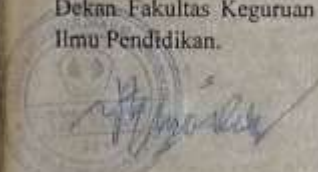 Dekan Fakultas Keguruan
Ilmu Pendidikan.